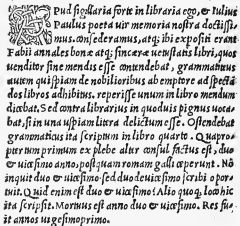 APud sigillaria forte in libraria ego, et Iulius
Paulus poeta uir memoria nostra doctissi-
mus. consederamus, atq; ibi expositi erant
Fabii annales bonæ atq; sincæræ uetustatis libri, quos
uenditor sine mendis esse contendebat, grammaticus
autem quispiam de nobilioribus ab emptore ad specta
dos libros adhibitus. reperisse unum in libro mendum
dicebat. Sed contra librarius in quoduis pignus uocа-
bat, si in una uspiam litera delictum esse. Ostendebat
grammaticus ita scriptum in libro quarto. Quapro-
pter tum primum ex plebe alter consul factus est, duo
& uicesimo anno, postquam romam galli cœperunt. Nō
inquit duo & uicesimo. sed duo de uicesimo scribi opor-
tuit. Quid enim est duo & uicesimo? Alio quoq; loco hic
ita scripsit. Mortuus est anno duo & uicesimo. Rex fu-
it annos uigesimoprimo.